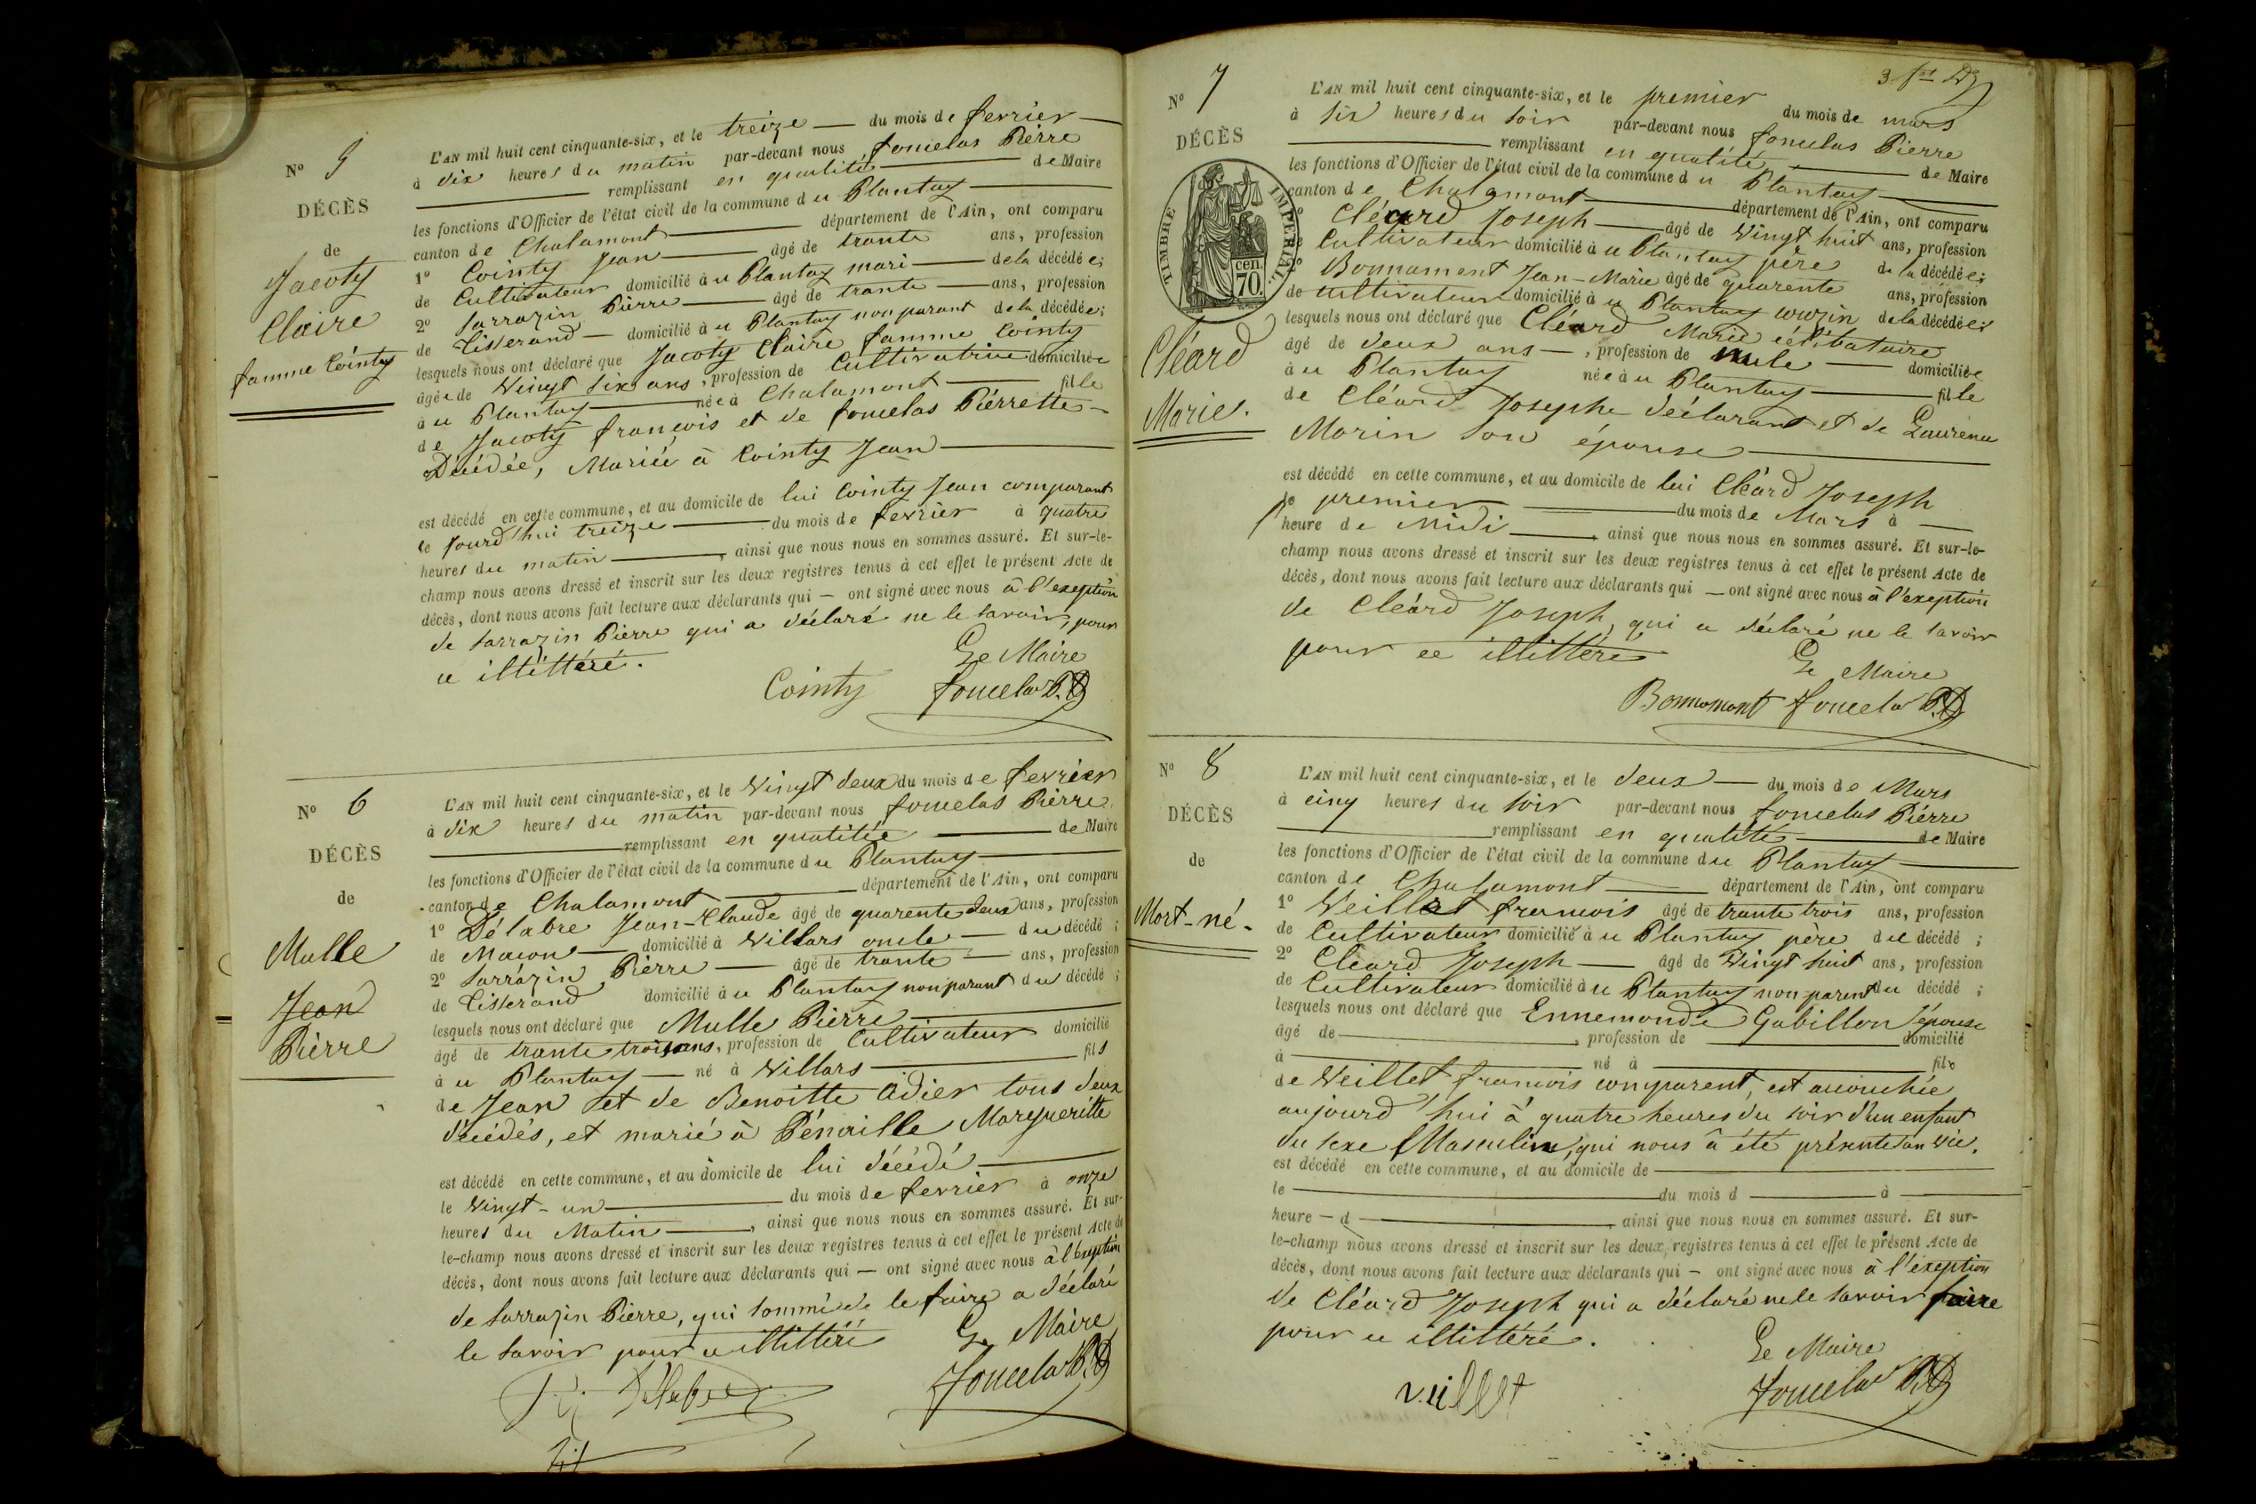 N° 5
DÉCÈS
de
Jacoty
Claire
famme Cointy
L'AN mil huit cent cinquante-six, et le treize — du mois de fevrier —
à dix heures du matin par-devant nous foncelas Pièrre
remplissant en qualité de Maire
les fonctions d'Officier de l'état civil de la commune du Plantay
canton de Chalamont département de l'Ain, ont comparu
1° Cointy Jean âgé de trante ans, profession
de Cultivateur domicilié au Plantay mari de la décédée;
2° Sarrazin Pièrre âgé de trante ans, profession
de Tisserand domicilié au Plantay non parant de la décédée;
lesquels nous ont déclaré que Jacoty Claire famme Cointy
âgée de Vingt six ans, profession de Cultivatrice domiciliée
au Plantay née à Chalamont fille
de Jacoty françois et de foncelas Pièrrette
Décédée, Mariée à Cointy Jean
est décédé en cette commune, et au domicile de lui Cointy Jean comparant
le jourd'hui treize du mois de fevrier à quatre
heures du matin, ainsi que nous nous en sommes assuré. Et sur-le-
champ nous avons dressé et inscrit sur les deux registres tenus à cet effet le présent Acte de
décès, dont nous avons fait lecture aux déclarants qui — ont signé avec nous à l'exeption
de Sarrazin Pièrre qui a déclaré ne le savoir, pour
ce illittéré.
Le Maire
Cointy foncelas P.
N° 6
DÉCÈS
de
Mulle
Jean
Pièrre
L'AN mil huit cent cinquante-six, et le Vingt deux du mois de fevrier
à dix heures du matin par-devant nous foncelas Pièrre
remplissant en qualitée de Maire
les fonctions d'Officier de l'état civil de la commune du Plantay
canton de Chalamont département de l'Ain, ont comparu
1° Délabre Jean-Claude âgé de quarente deux ans, profession
de Macon domicilié à Villars oncle du décédé;
2° Sarrázin Pièrre âgé de trante ans, profession
de Tisserand domicilié au Plantay non parant du décédé;
lesquels nous ont déclaré que Mulle Pièrre
âgé de trante trois ans, profession de Cultivateur domicilié
au Plantay né à Villars fils
de Jean et de Benoitte Adier tous deux
décédés, et marié à Pénaille Margueritte
est décédé en cette commune, et au domicile de lui décédé
le Vingt-un du mois de fevrier à onze
heures du Matin, ainsi que nous nous en sommes assuré. Et sur-
le-champ nous avons dressé et inscrit sur les deux registres tenus à cet effet le présent Acte de
décès, dont nous avons fait lecture aux déclarants qui — ont signé avec nous à l'exeption
de Sarrazin Pierre, qui sommé de le faire a déclaré
le savoir pour ce illittéré
Le Maire
Délabre foncelas P.
3
N° 7
DÉCÈS
TIMBRE IMPÉRIAL
70 cen.
Cléard
Marie.
L'AN mil huit cent cinquante-six, et le premier du mois de mars
à six heures du soir par-devant nous foncelas Pièrre
remplissant en qualité de Maire
les fonctions d'Officier de l'état civil de la commune du Plantay
canton de Chalamont département de l'Ain, ont comparu
Cléard Joseph âgé de Vingt huit ans, profession
Cultivateur domicilié au Plantay père de la décédée;
Bonnament Jean-Marie âgé de quarente ans, profession
de cultivateur domicilié au Plantay couzin de la décédée;
lesquels nous ont déclaré que Cléard Marie célibataire
âgé de deux ans, profession de nule domiciliée
au Plantay née au Plantay fille
de Cléard Josephe déclarant et de Laurence
Morin son épouse
est décédé en cette commune, et au domicile de lui Cléard Joseph
le premier du mois de Mars à
heure de Midi, ainsi que nous nous en sommes assuré. Et sur-le-
champ nous avons dressé et inscrit sur les deux registres tenus à cet effet le présent Acte de
décès, dont nous avons fait lecture aux déclarants qui — ont signé avec nous à l'exeption
de Cléard Joseph, qui a déclaré ne le savoir
pour ce illittéré
Le Maire
Bonnamont foncelas P.
N° 8
DÉCÈS
de
Mort-né.
L'AN mil huit cent cinquante-six, et le deux du mois de Mars
à cinq heures du soir par-devant nous foncelas Pièrre
remplissant en qualité de Maire
les fonctions d'Officier de l'état civil de la commune du Plantay
canton de Chalamont département de l'Ain, ont comparu
1° Veillet francois âgé de trante trois ans, profession
de Cultivateur domicilié au Plantay père du décédé;
2° Cléard Joseph âgé de Vingt huit ans, profession
de Cultivateur domicilié au Plantay non parent du décédé;
lesquels nous ont déclaré que Ennemonde Gabillon l'épouse
âgé de, profession de domicilié
à né à fils
de Veillet francois comparent, est accouchée
aujourd'hui à quatre heures du soir d'un enfant
du sexe Masculine, qui nous à été présente san vie.
est décédé en cette commune, et au domicile de
le du mois d à
heure — d, ainsi que nous nous en sommes assuré. Et sur-
le-champ nous avons dressé et inscrit sur les deux registres tenus à cet effet le présent Acte de
décès, dont nous avons fait lecture aux déclarants qui — ont signé avec nous à l'éxeption
de Cléard Joseph qui a déclaré ne le savoir faire
pour ce illittéré.
Le Maire
veillet foncelas P.